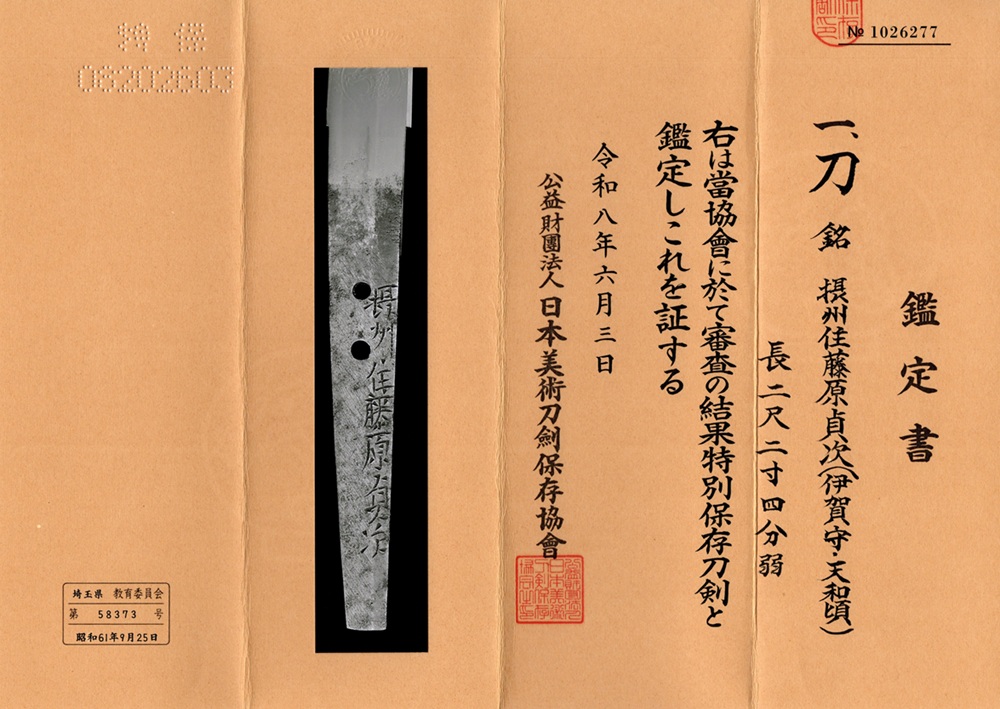 № 1026277
鑑定書
一、刀 銘 摂州住藤原貞次(伊賀守・天和頃)
長二尺二寸四分弱
右は當協會に於て審査の結果特別保存刀剣と
鑑定しこれを証する
令和八年六月三日
公益財團法人日本美術刀劍保存協會
摂州住藤原貞次
特保
06202603
埼玉県 教育委員会
第 58373 号
昭和61年9月25日